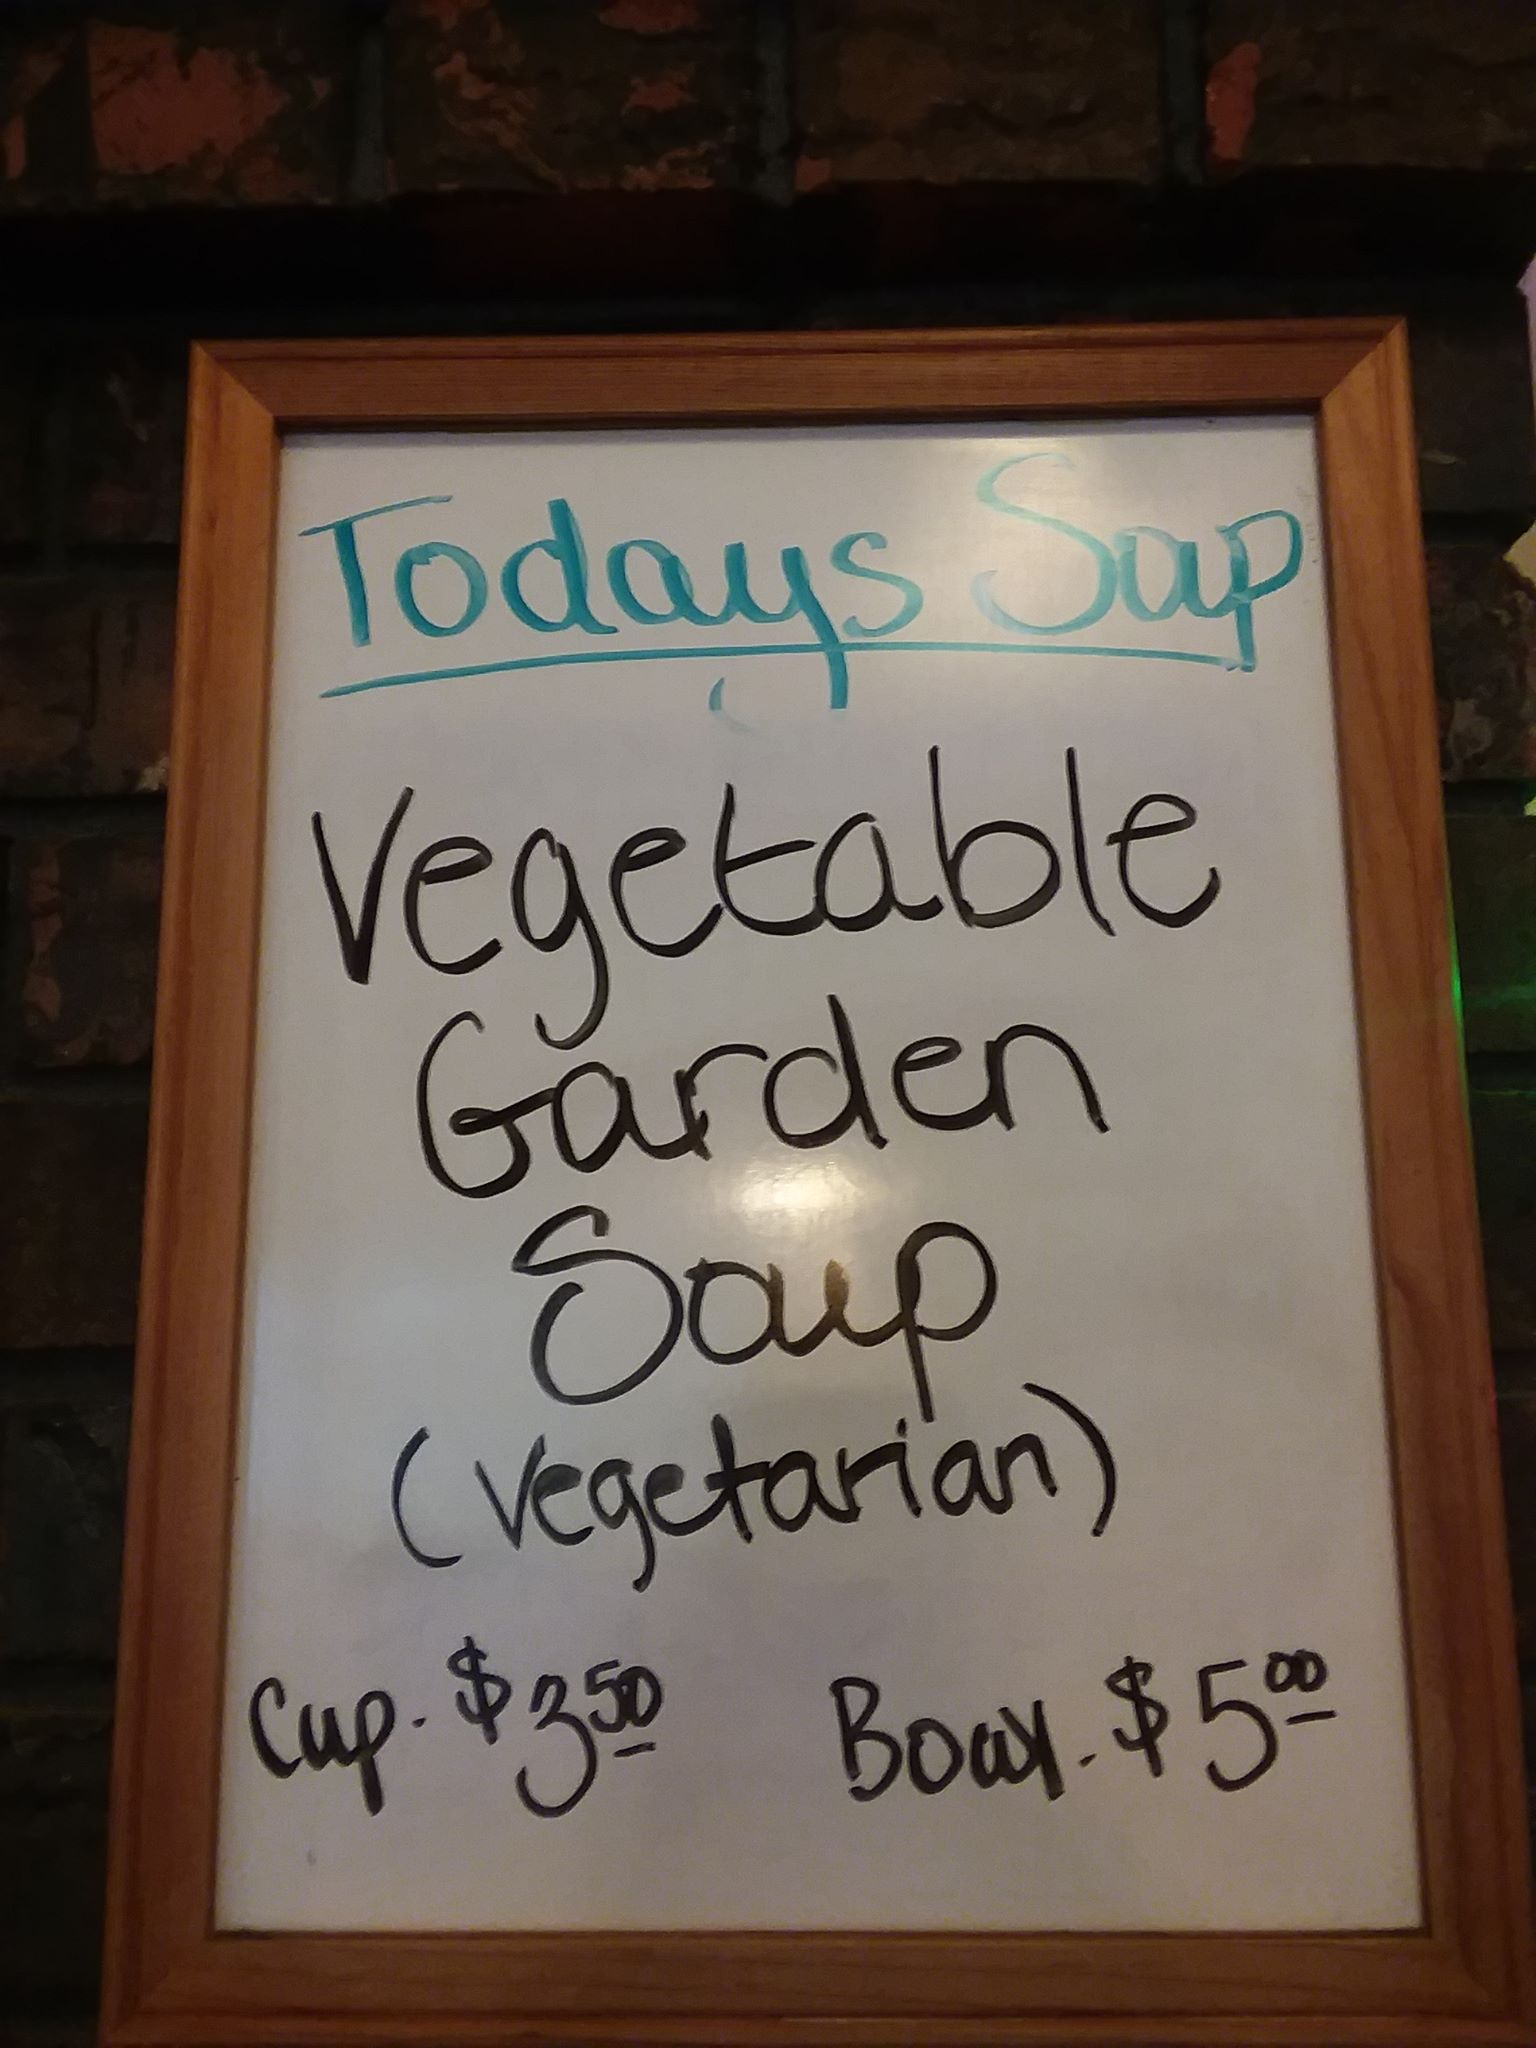 Todays Soup
Vegetable
Garden
Soup
(Vegetarian)
Cup. $3.50 Bowl. $5.00